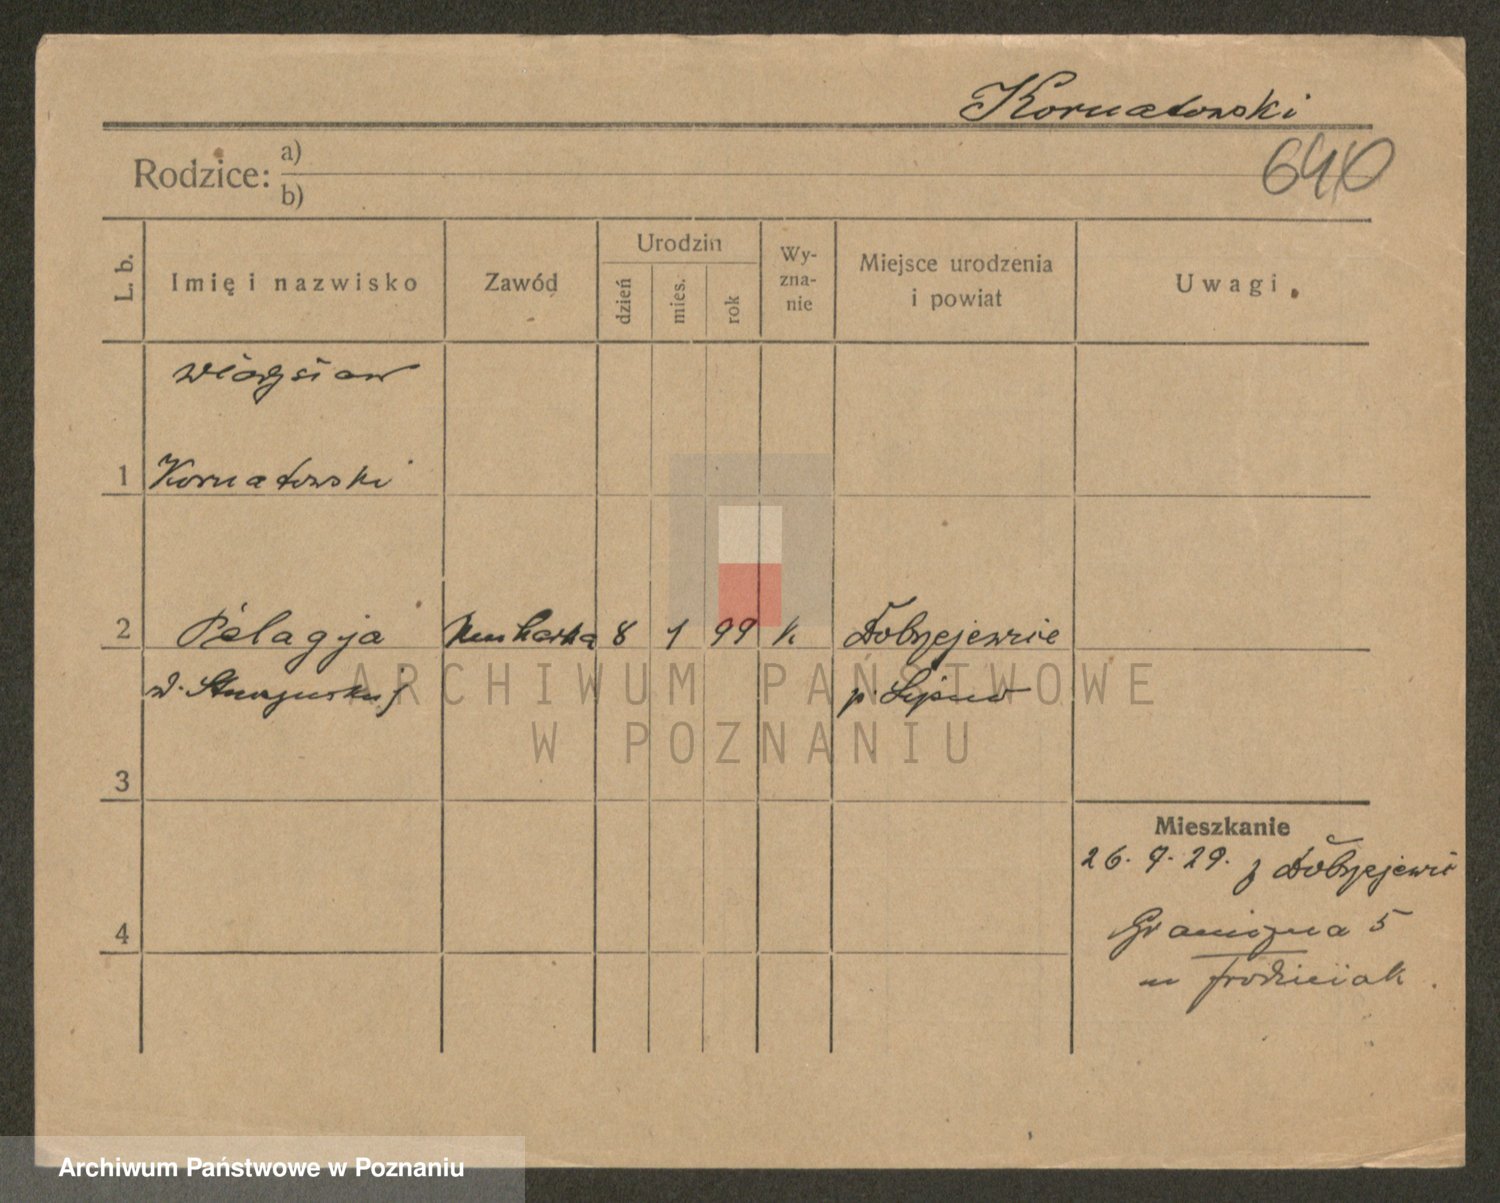 Kornatowski
640
Rodzice: a)
b)
L. b.
Imię i nazwisko
Zawód
Urodzin
dzień
mies.
rok
Wy-
zna-
nie
Miejsce urodzenia
i powiat
Uwagi
Władysław
1 Kornatowski
2 Pelagja Kucharka 8 1 99 k Dobrzejewice
p. Lipno
3
Mieszkanie
26. 9. 29. z Dobrzejewic
4
Graniczna 5
ARCHIWUM PAŃSTWOWE
W POZNANIU
Archiwum Państwowe w Poznaniu